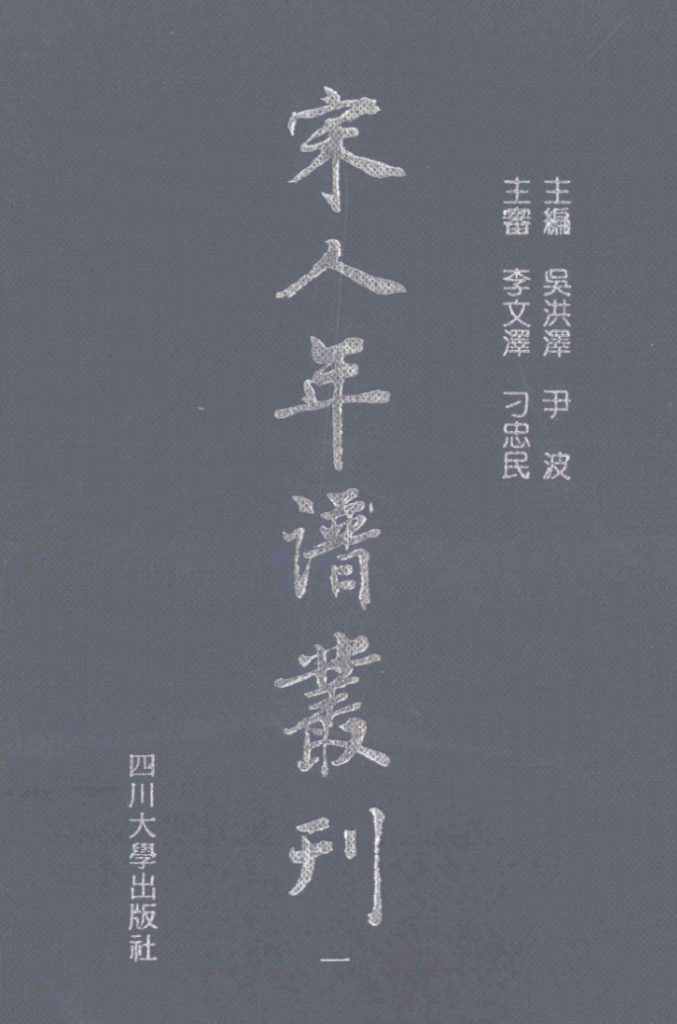 主編 吳洪澤 尹波
主審 李文澤 刁忠民
宋人年譜叢刊
一
四川大學出版社